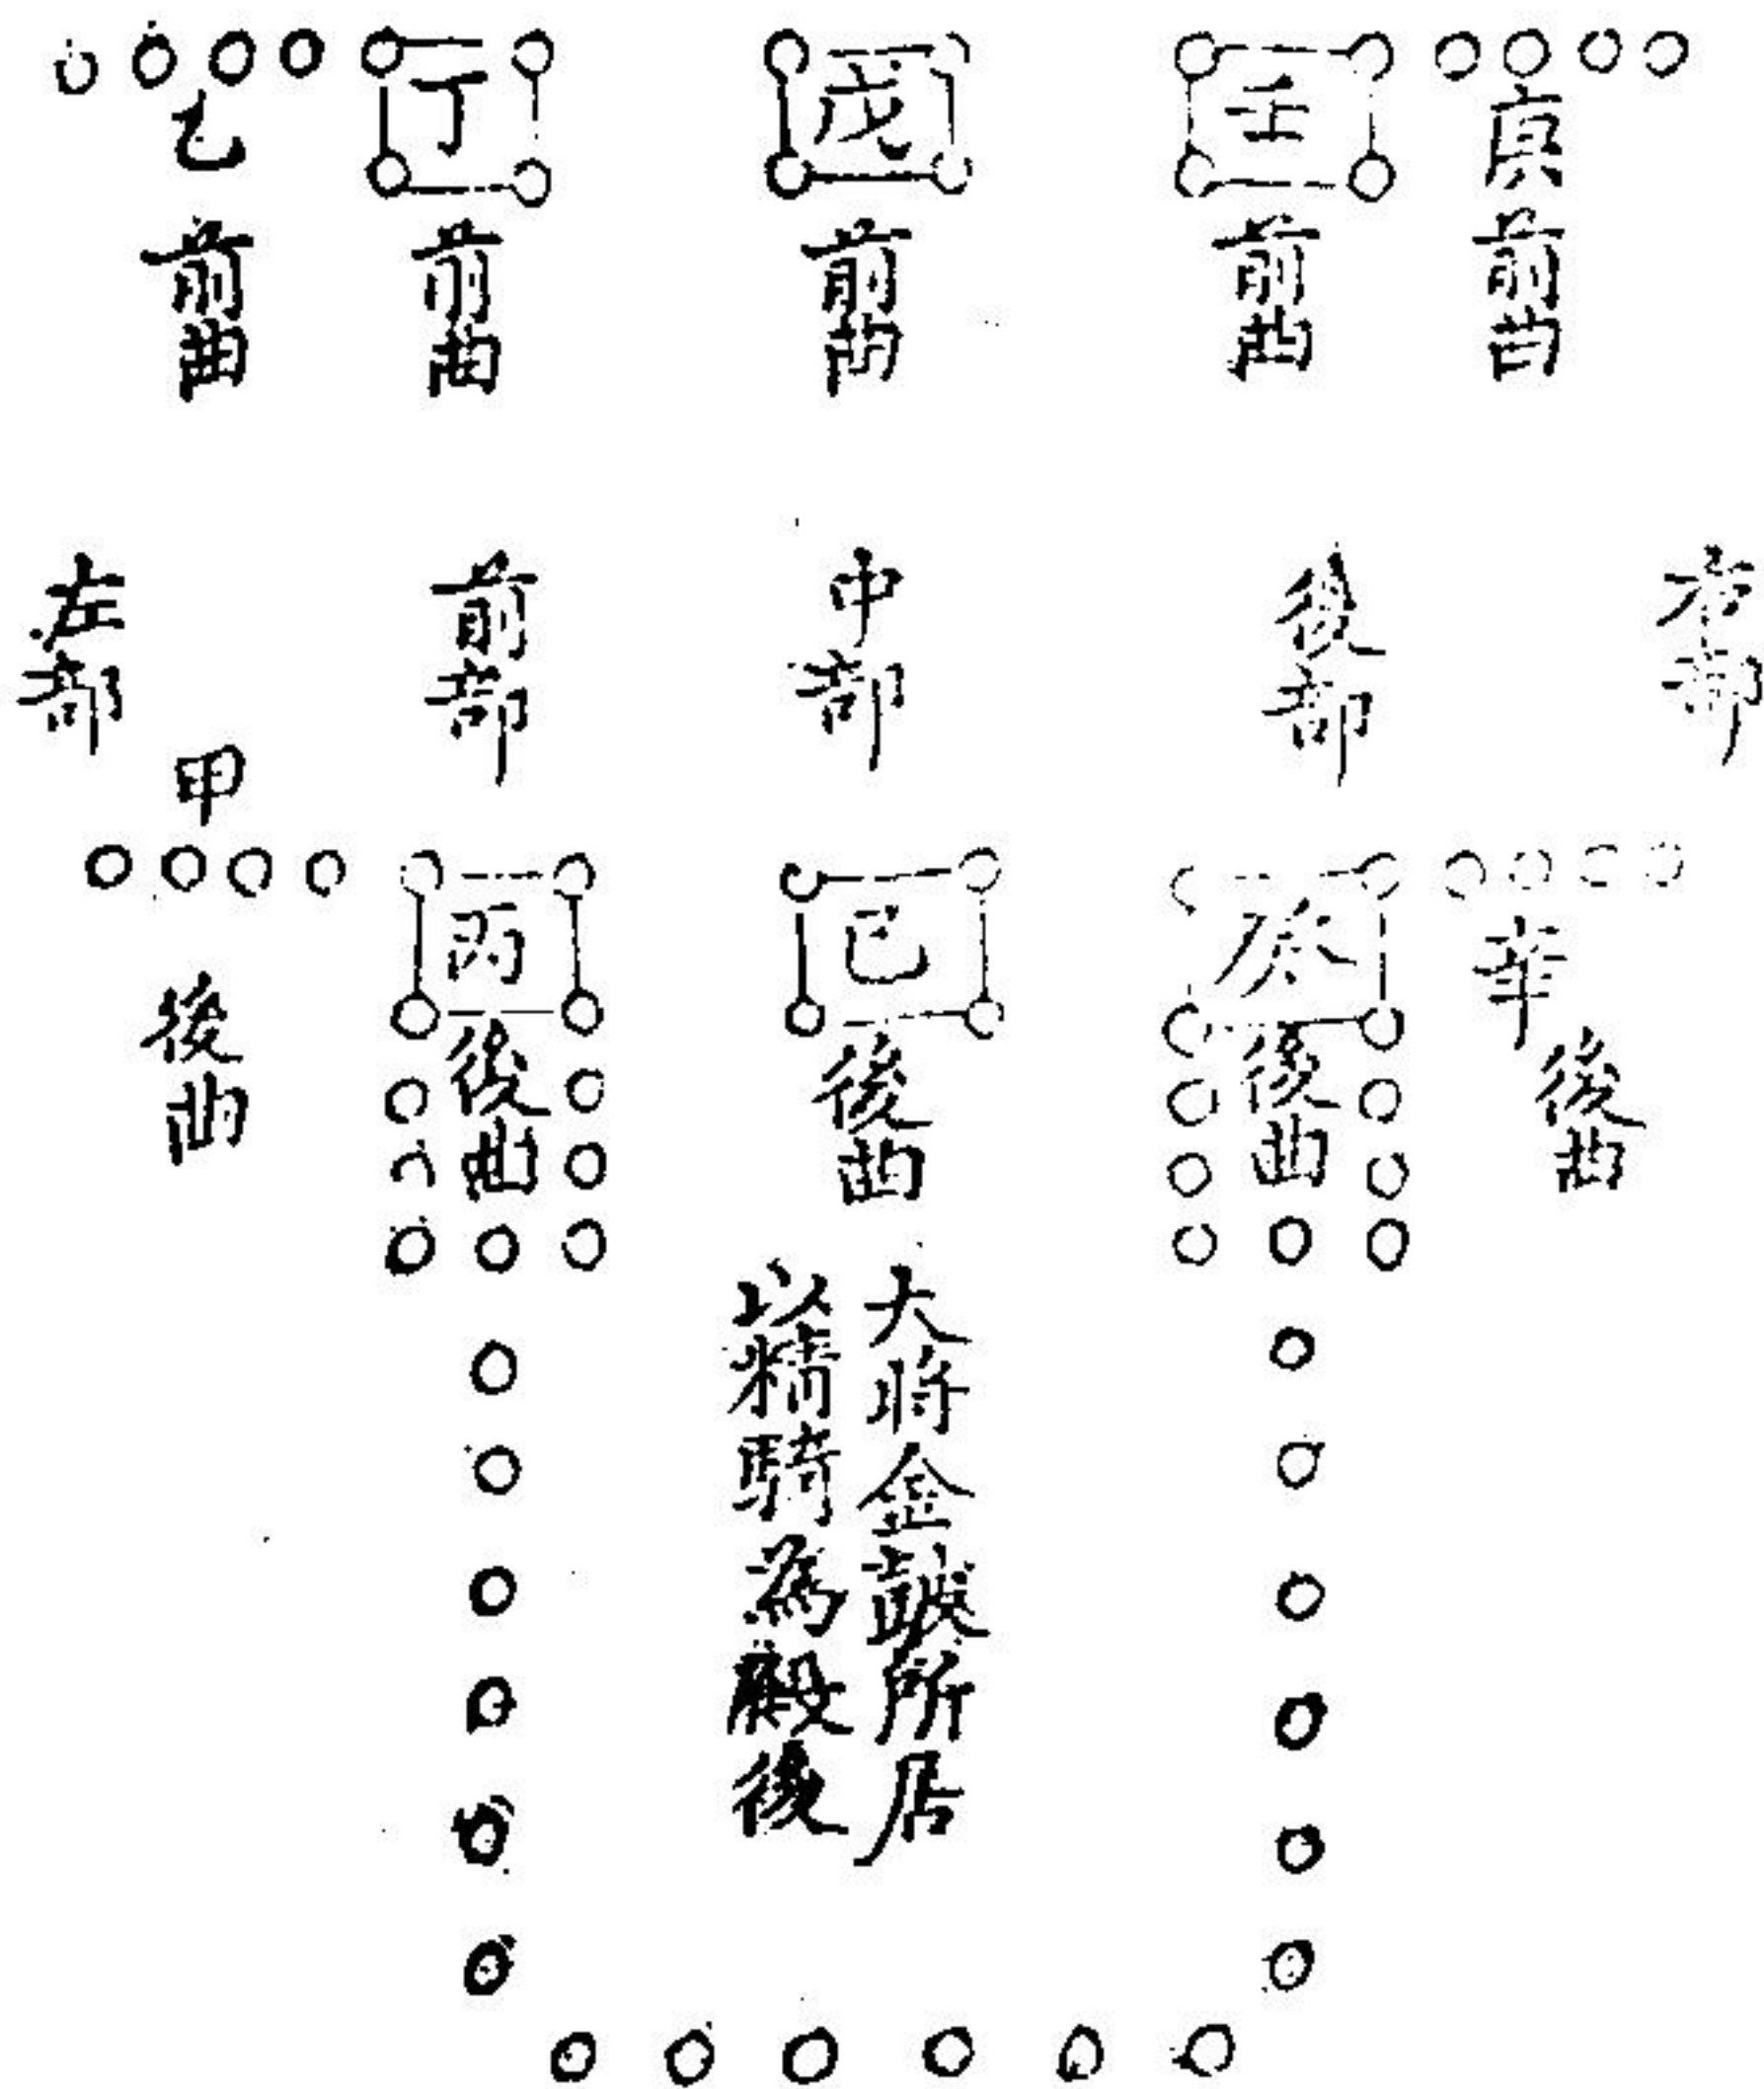 庚前曲
壬前曲
戊前曲
丁前曲
乙前曲
右部
後部
中部
前部
左部
辛後曲
癸後曲
己後曲
丙後曲
甲後曲
大將金鼓所居
以精騎為殿後